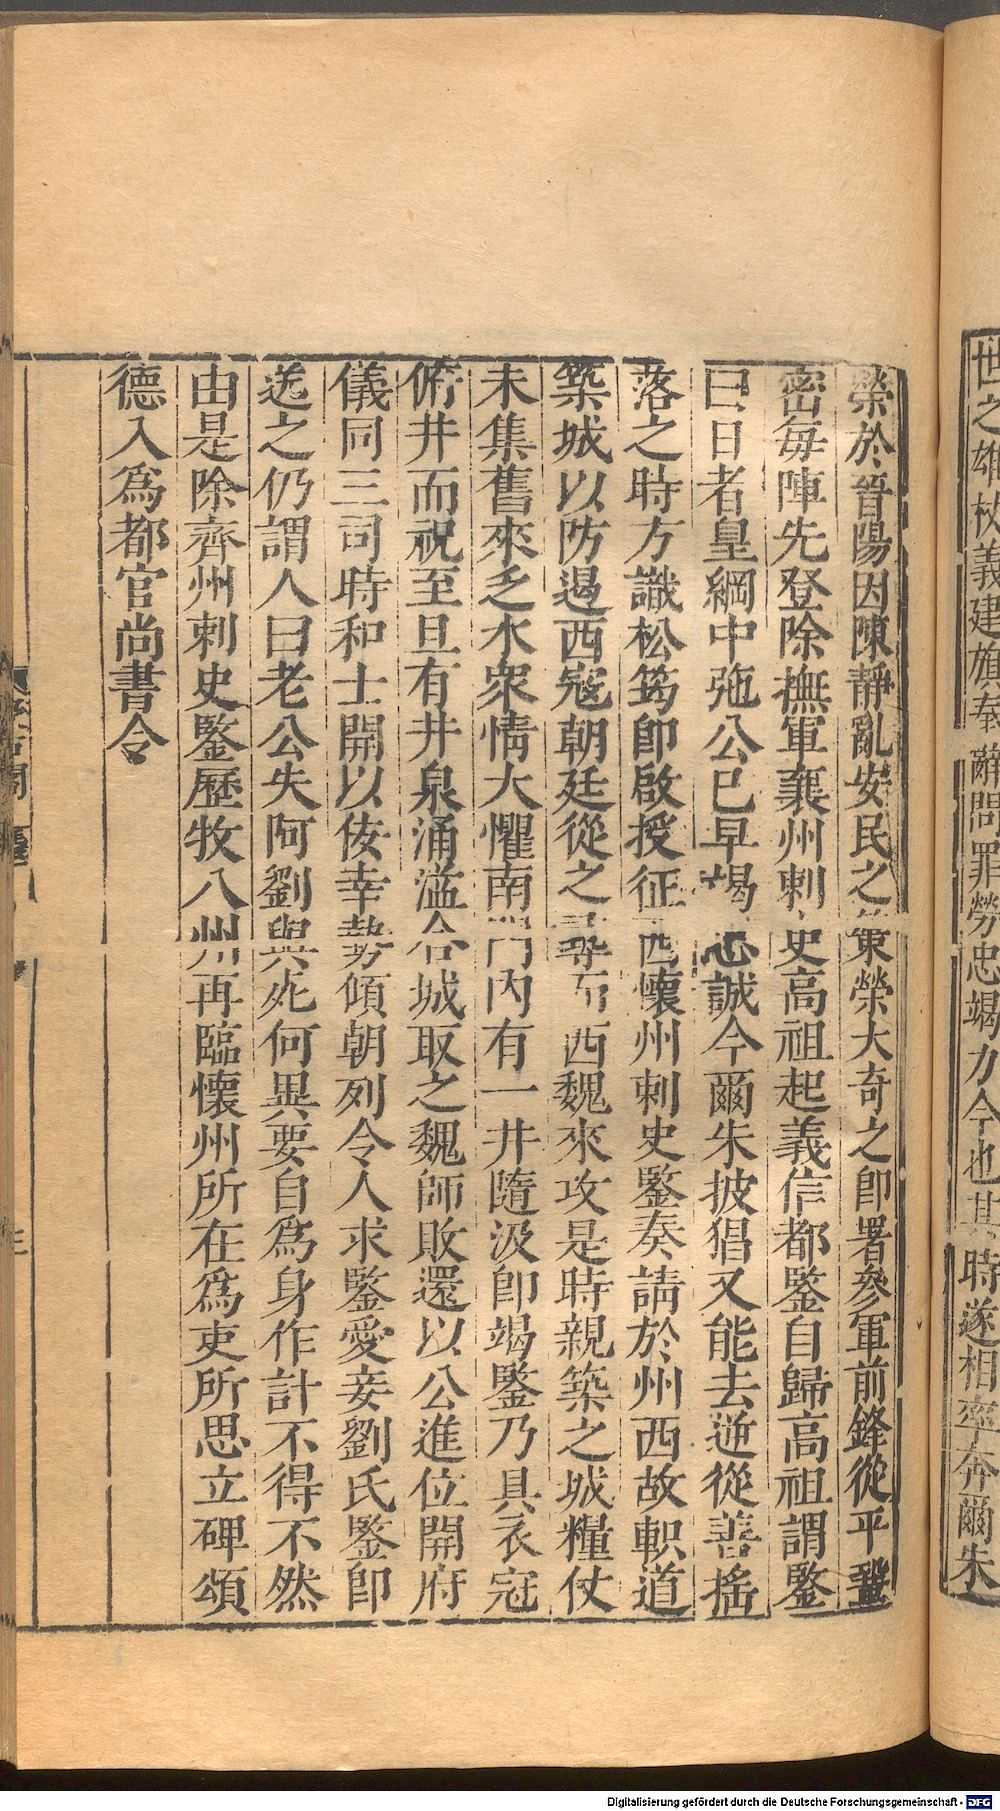 世之雄杖義建旗奉辭問罪勞忠竭力今也其時遂相率奔爾朱
榮於晉陽因陳靜亂安民之策榮大奇之卽署參軍前鋒從平鞏
密每陣先登除撫軍襄州刺史高祖起義信都鑒自歸高祖謂鑒
曰日者皇綱中弛公已早竭忠誠今爾朱披猖又能去逆從善搖
落之時方識松筠卽啟授征西懷州刺史鑒奏請於州西故軹道
築城以防遏西寇朝廷從之尋而西魏來攻是時親築之城糧仗
未集舊來乏水衆情大懼南門內有一井隨汲卽竭鑒乃具衣冠
俯井而祝至旦有井泉涌溢合城取之魏師敗還以公進位開府
儀同三司時和士開以佞幸勢傾朝列令人求鑒愛妾劉氏鑒卽
送之仍謂人曰老公失阿劉與死何異要自爲身作計不得不然
由是除齊州刺史鑒歷牧八州再臨懷州所在爲吏所思立碑頌
德入爲都官尚書令
Digitalisierung gefördert durch die Deutsche Forschungsgemeinschaft - DFG